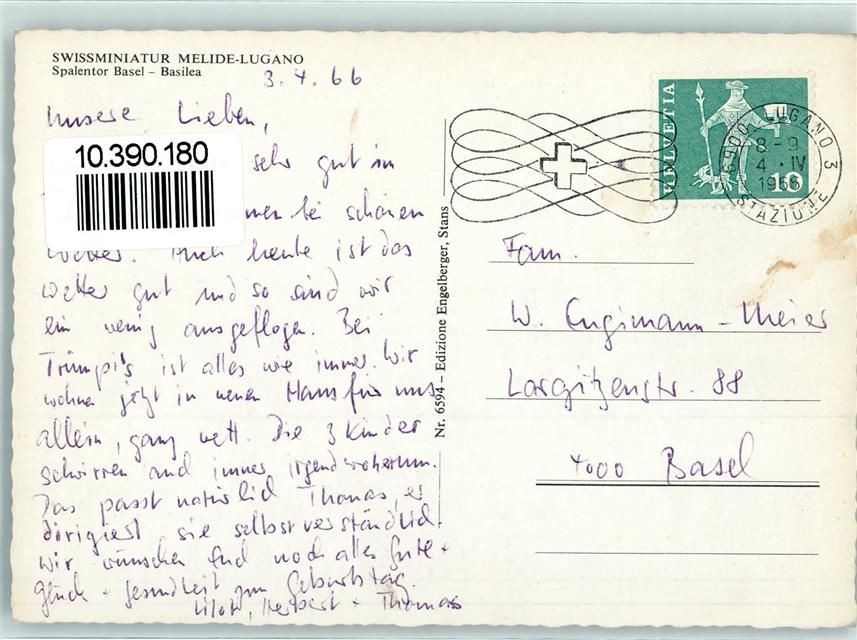 SWISSMINIATUR MELIDE-LUGANO
Spalentor Basel – Basilea
3.4.66
Unsere Lieben,
10.390.180
sehr gut in
bei schönen
Wetter. Auch heute ist das
Wetter gut und so sind wir
ein wenig ausgeflogen. Bei
Trümpi's ist alles wie immer. Wir
wohnen jetzt in neuen Haus für uns
allein, ganz nett. Die 3 Kinder
schwirren auch immer irgendwoherum.
Das passt natürlich Thomas, er
dirigiert sie selbstverständlich.
Wir wünschen noch alles Gute +
Glück + Gesundheit zum Geburtstag.
Herbert + Thomas
Nr. 6594 – Edizione Engelberger, Stans
HELVETIA
10
6900 LUGANO 3
8-9
4·IV
1966
STAZIONE
Fam.
W. Engimann-Meier
Largitzenstr. 88
4000 Basel